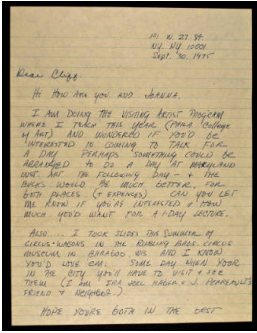 N.Y. N.Y. 10001
Sept. 30, 1975
Dear
Hi How are you and Joanna.
I am doing the visiting artist program
where I teach this year (Phila. College
of Art) and wondered if you'd be
interested in coming to talk for
a day. Perhaps something could be
arranged to do a day at Maryland
Inst. Art the following day - & the
bucks would be much better, for
both places (& expenses) Can you let
me know if you're interested & how
much you'd want for a 1-day lecture.
Also .. I took slides this summer of
circus-wagons in the Ringling Bros. Circus
Museum in Baraboo Wis. and I know
you'd love 'em. Some day when your
in the city you'll have to visit & see
them (I am
friend & neighbor.)
Hope